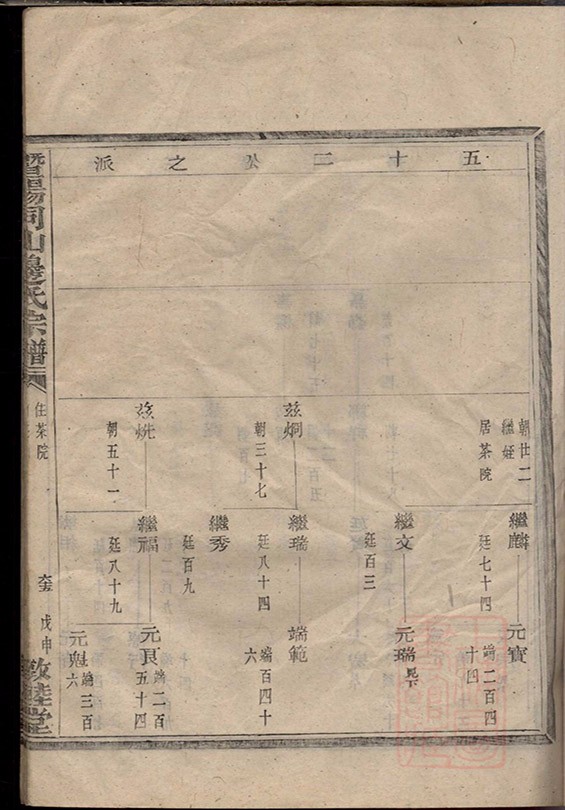 五十二公之派
朝廿二
繼姪
居茶院
茲炯
朝三十七
茲烑
朝五十一
繼麟
廷七十四
繼文
廷百三
繼瑞
廷八十四
繼秀
廷百九
繼福
廷八十九
元寳
端二百四
十四
元瑞
見下
端範
端百四十
六
元良
端二百
五十四
元魁
端三百
六
暨陽同山邊氏宗譜
住茶院
戊申
敦睦堂